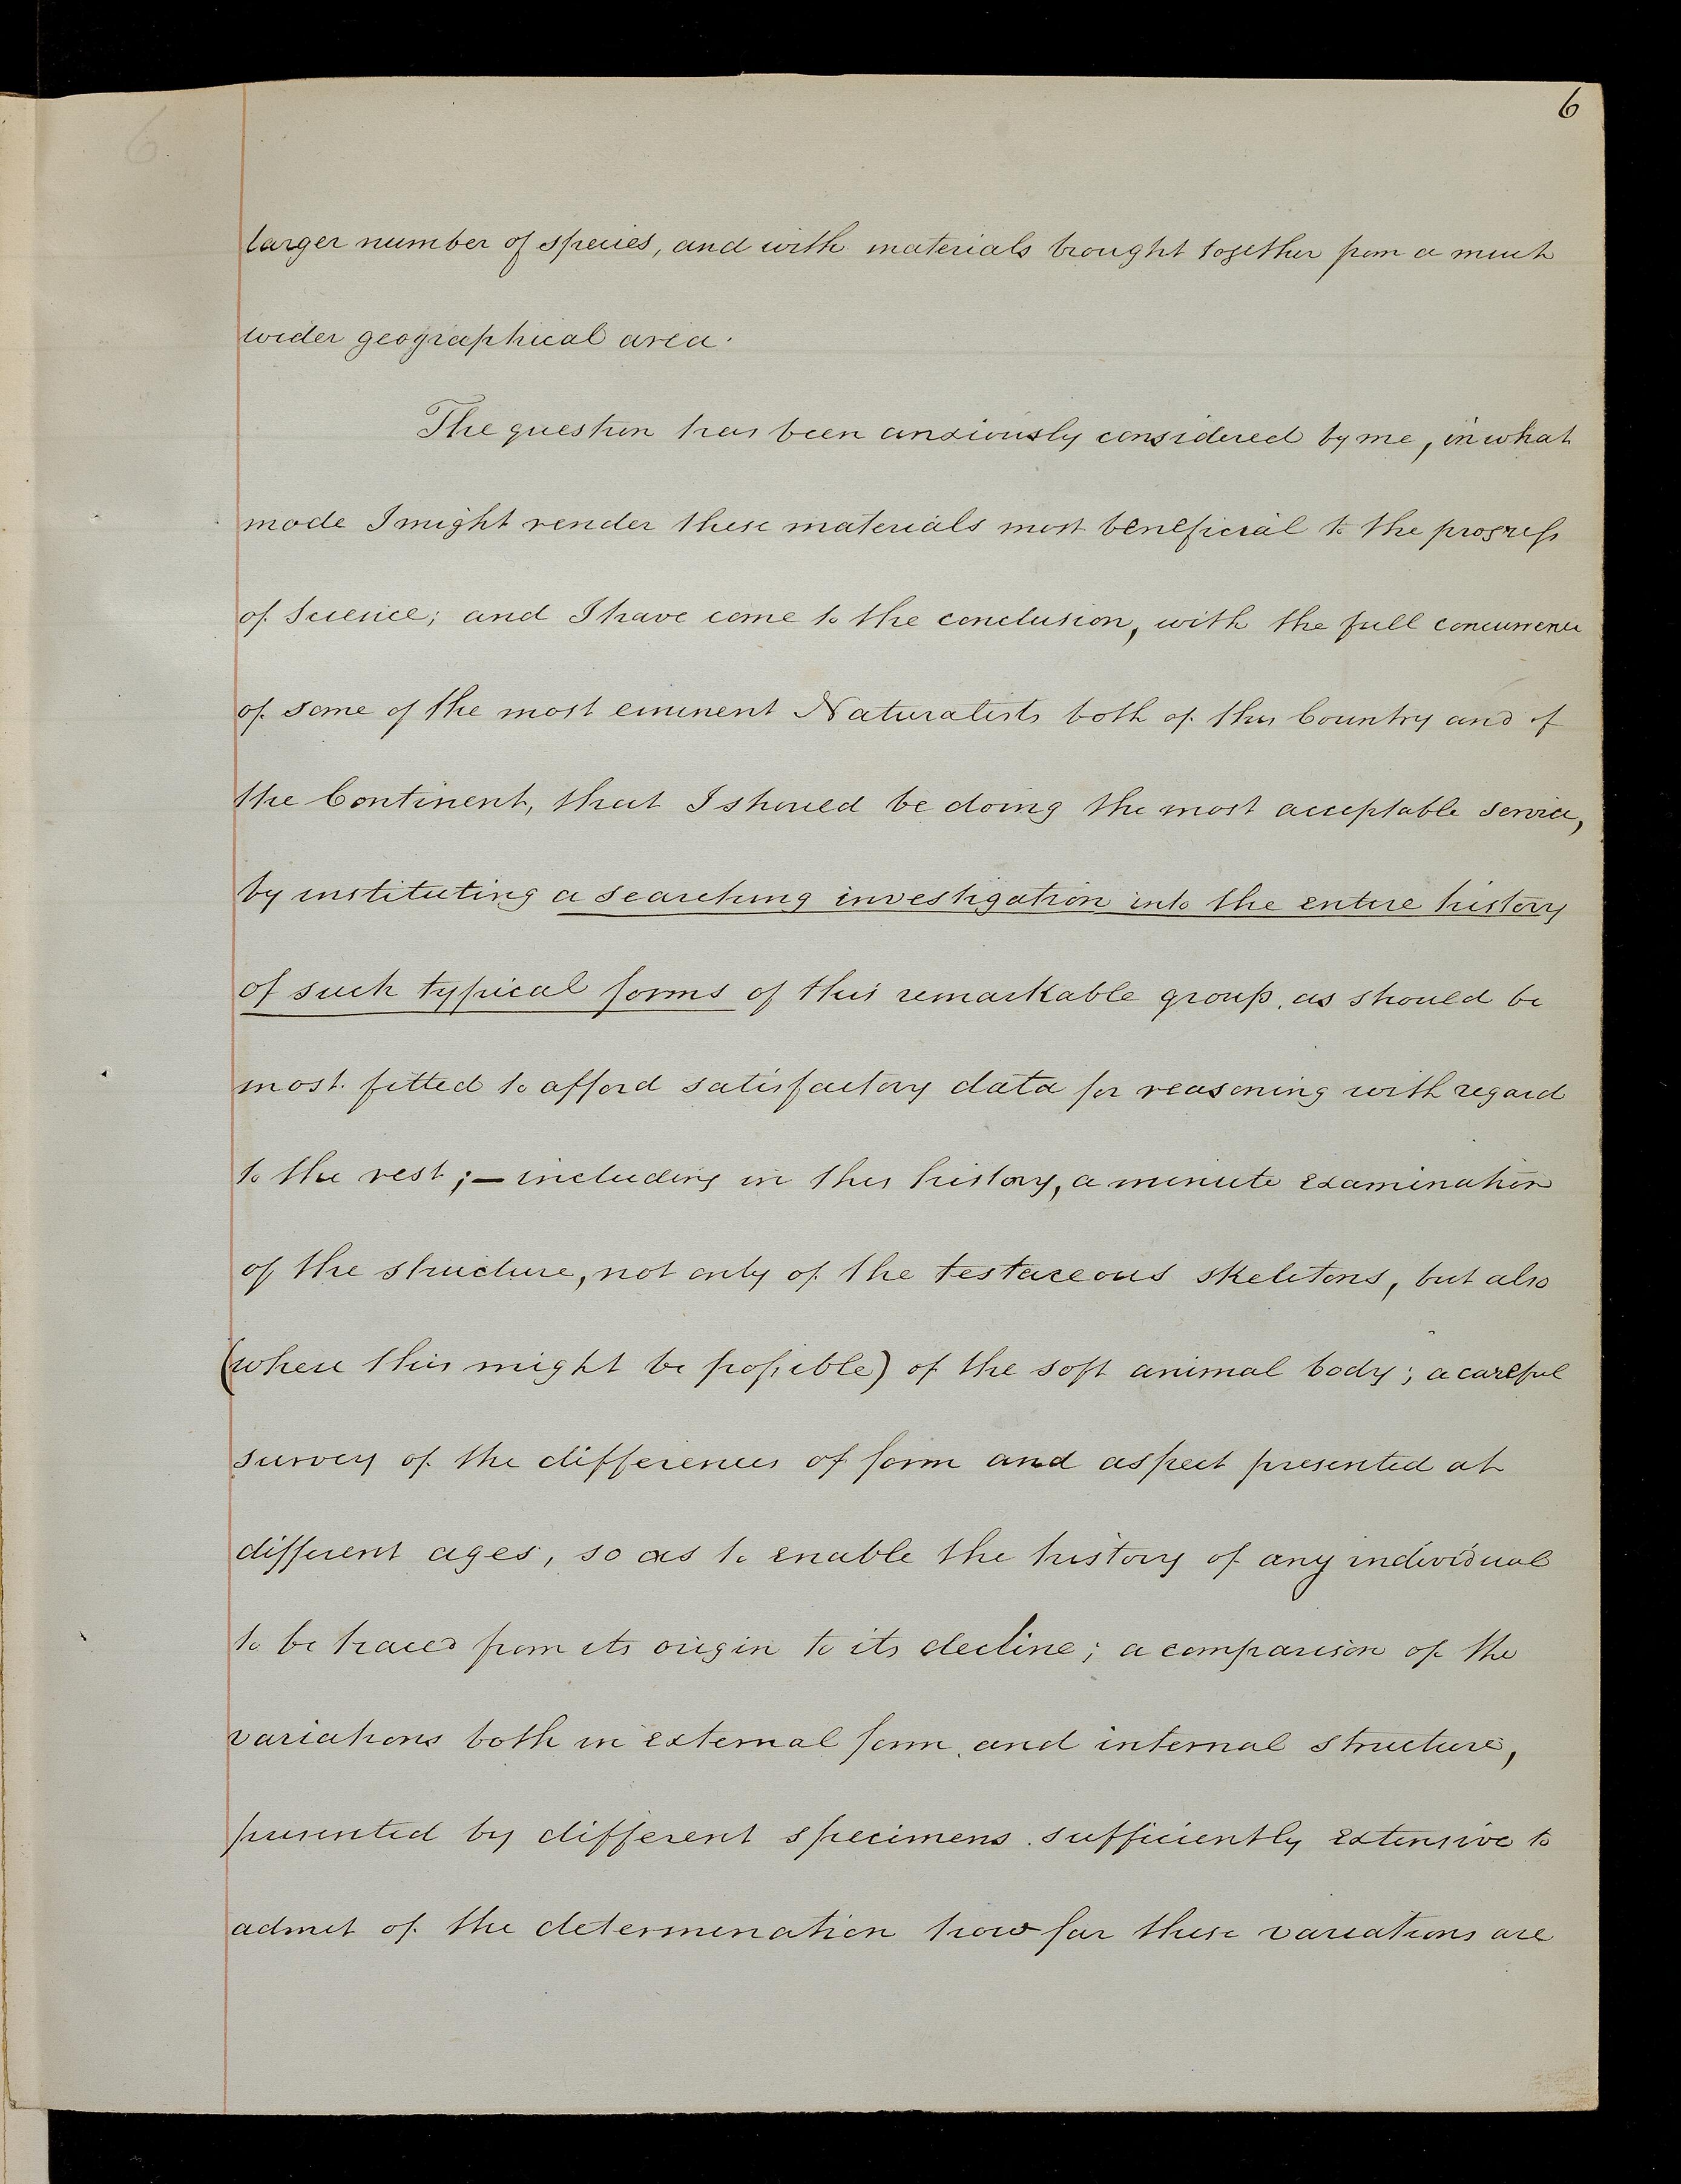 6
larger number of species, and with materials brought together from a much
wider geographical area.
The question has been anxiously considered by me, in what
mode I might render these materials most beneficial to the progress
of Science; and I have come to the conclusion, with the full concurrence
of some of the most eminent Naturalists both of this Country and of
the Continent, that I should be doing the most acceptable service,
by instituting a searching investigation into the entire history
of such typical forms of this remarkable group, as should be
most fitted to afford satisfactory data for reasoning with regard
to the rest;— including in this history, a minute examination
of the structure, not only of the testaceous skeletons, but also
(where this might be possible) of the soft animal body; a careful
survey of the differences of form and aspect presented at
different ages, so as to enable the history of any individual
to be traced from its origin to its decline; a comparison of the
variations both in external form, and internal structure,
presented by different specimens, sufficiently extensive to
admit of the determination how far these variations are